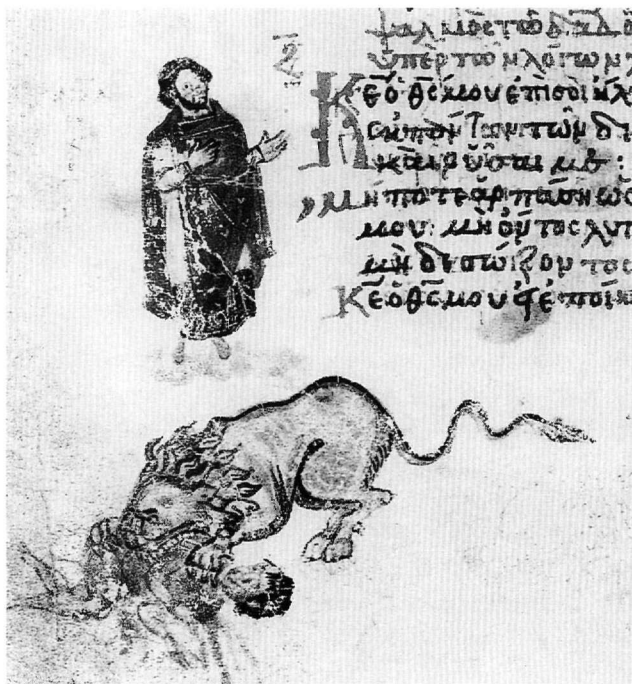 Ζ̅
ψαλμὸς τῶ δ̅α̅δ̅
ὑπὲρ τῶν λόγων
Κ̅ε̅ ὁ θ̅ς̅ μου ἐπὶ σοὶ ἤλ
πάντων τῶν δι
καὶ ῥῦσαι με :
μήποτε ἁρπάση ὡς
μου· μὴ ὄντος λυτ
μὴ δὲ σώζοντος
Κ̅ε̅ ὁ θ̅ς̅ μου ἐποίη